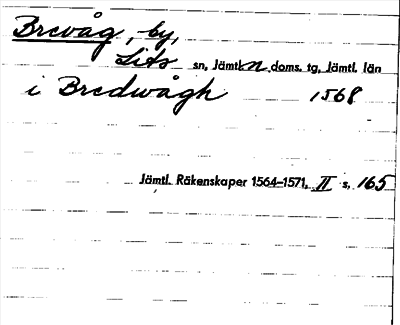 Brevåg, by,
Lits sn, Jämtl. n. doms. tg, Jämtl. län
i Bredwågh 1568
Jämtl. Räkenskaper 1564–1571, II s, 165